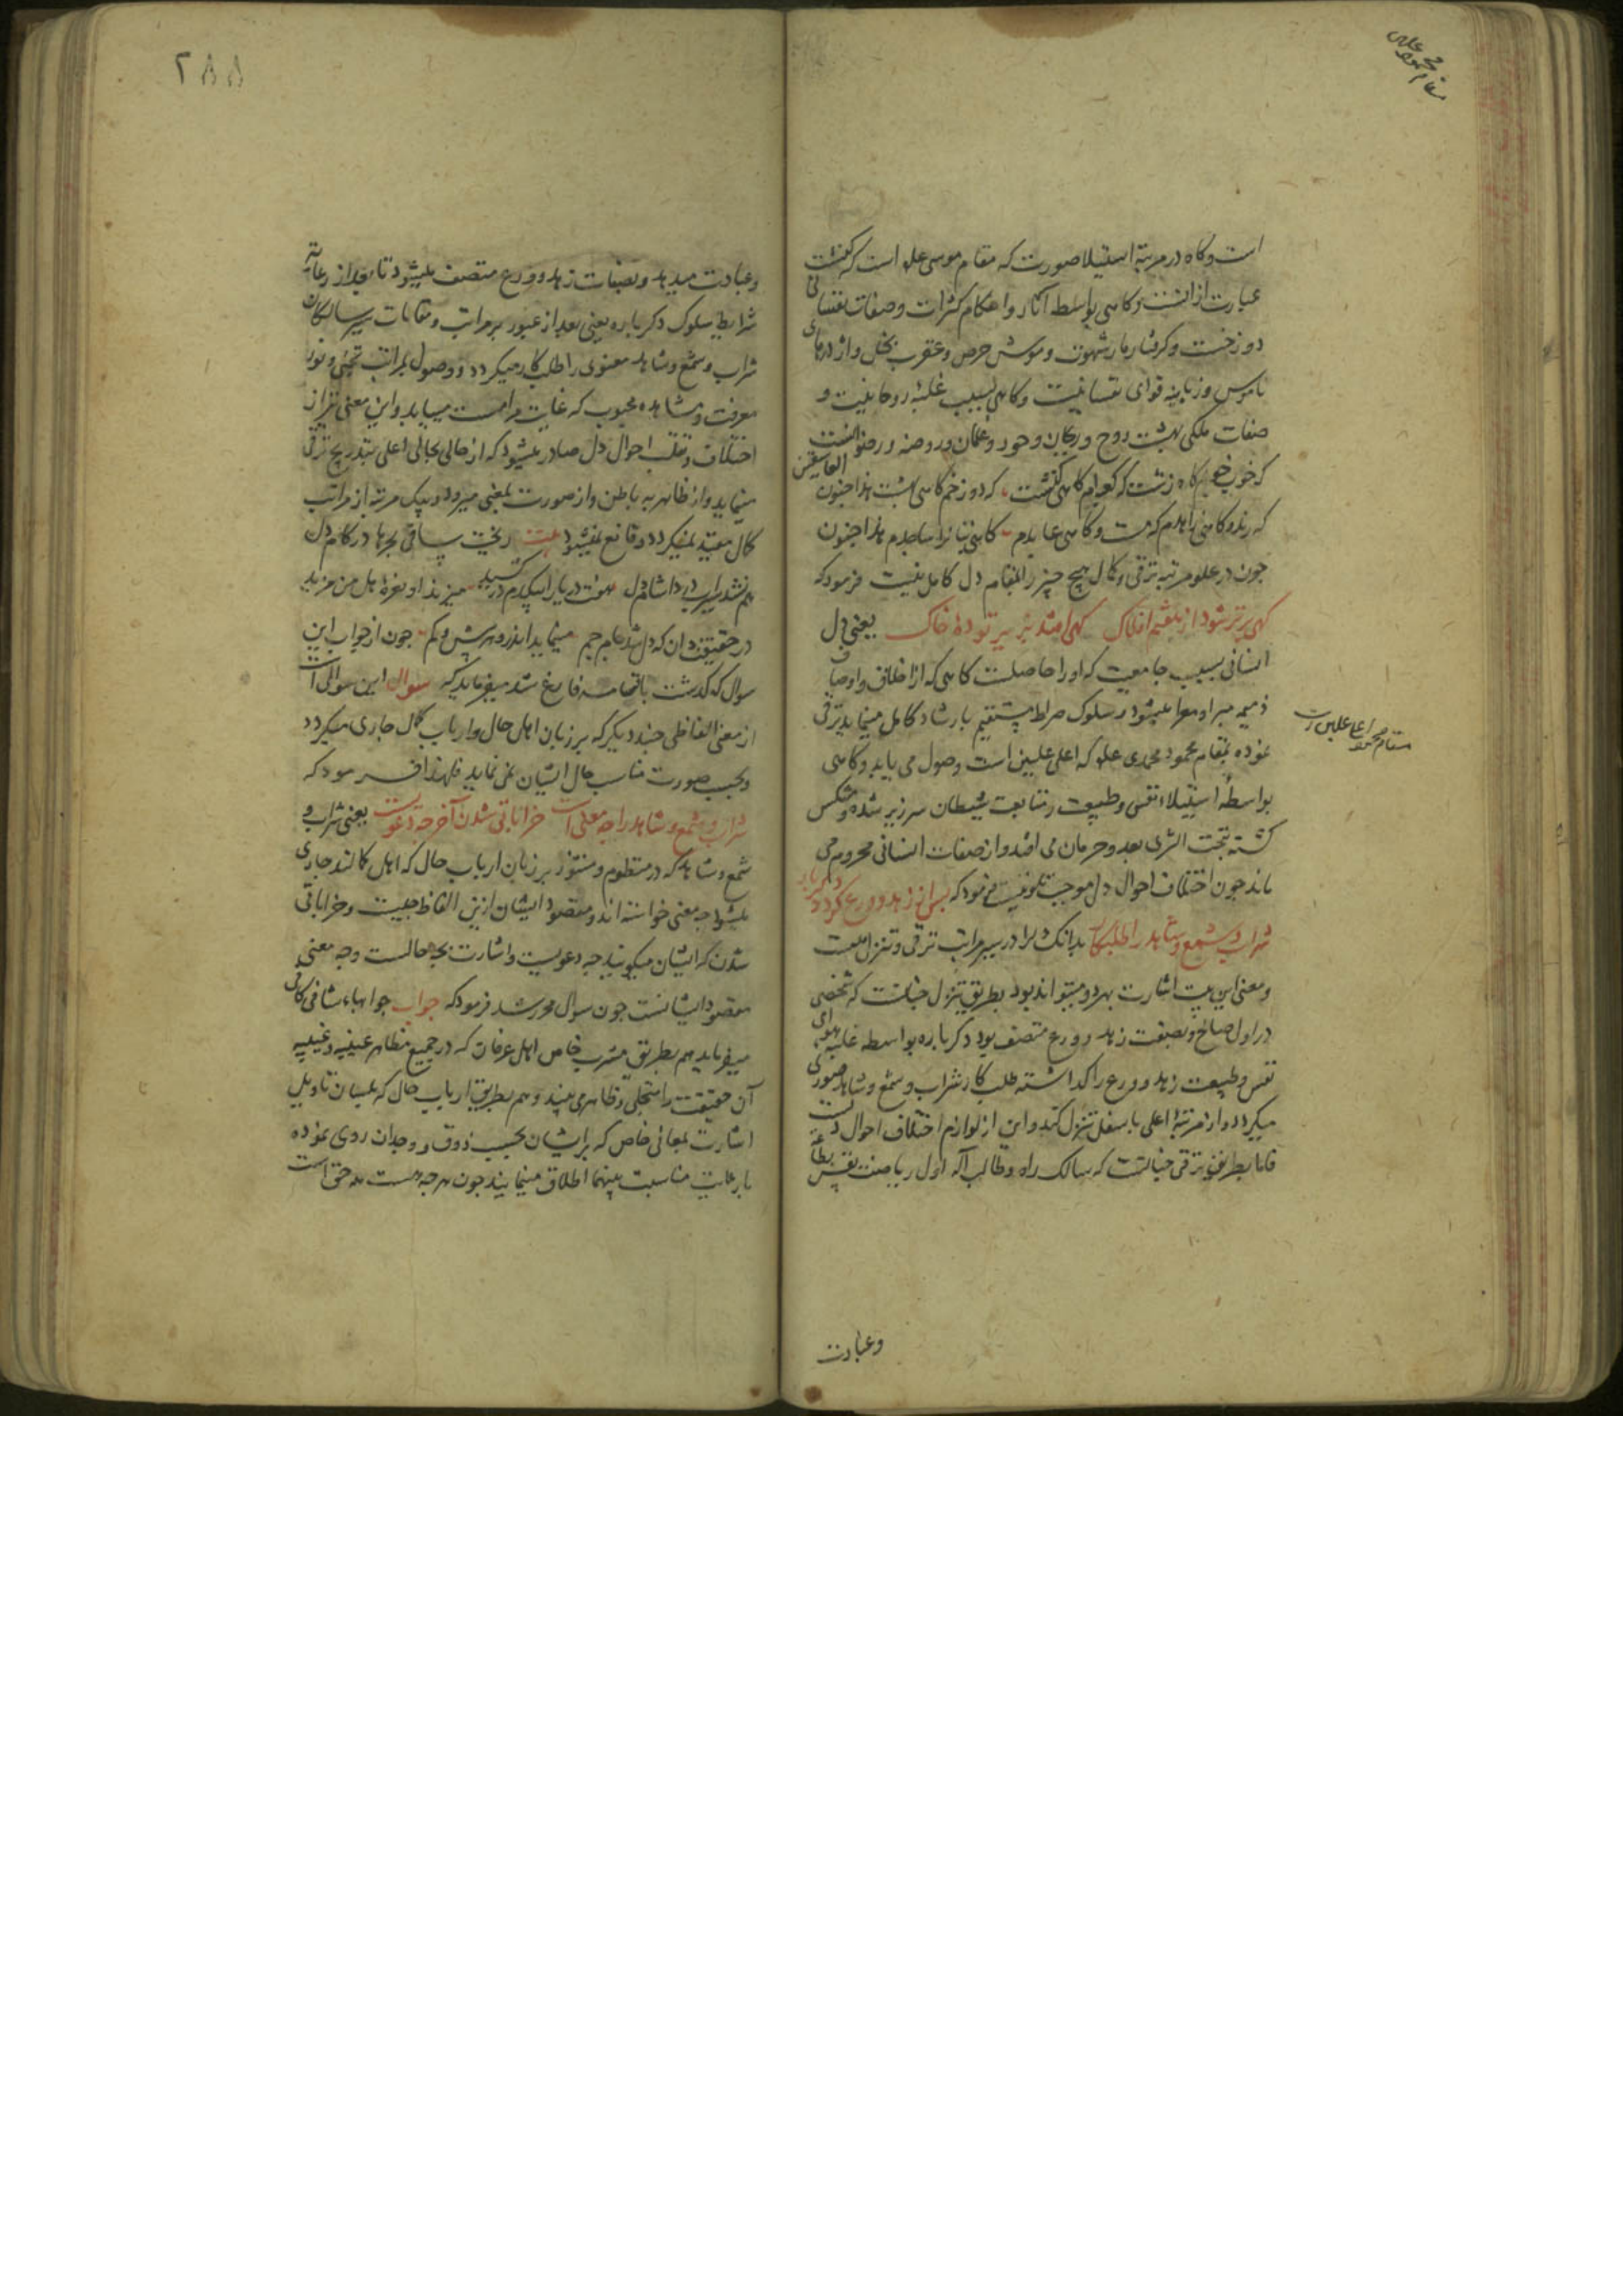 است و کاه در مرتبهٔ استیلا صورت که مقام موسی علم است که کنشت
عبارت از انست و کاهی بواسطه آثار و احکام کثرات و صفات نفسانی
دوزخست و کرفتار مار شهوت و موش حرص و عقرب بخل و اژدرهای
ناموس و زبانیه قوای نفسانیست و کاهی بسبب غلبهٔ روحانیت و
صفات ملکی بهشت روح و ریحان و حور و غلمان و روضه و رضوانست
که خوب کاه زشت که کعبه‌ام کاهی کنشت که دوزخم کاهی بهشت هذا جنون العاشقین
که رند و کاهی زاهدم که مست و کاهی عابدم کاهی هذا جنون
چون در علو مرتبه ترقی و کمال هیچ چیز را مقام دل کامل نیست فرمود که
کهی برتر شود از هفتم افلاک کهی افتد بزیر تودهٔ خاک یعنی دل
انسانی بسبب جامعیت که او را حاصلست کاهی که از اخلاق و اوصاف
ذمیمه مبرا و معرا میشود و سلوک صراط مستقیم بارشاد کامل مینماید ترقی
نموده بمقام محمود محمدی علم که اعلی علیین است وصول می یابد و کاهی
مقام محمود اعلی علیین است
بواسطهٔ استیلاء نفس و طبیعت و متابعت شیطان سرزیر شده و منعکس
کشته بتحت الثری بعد و حرمان می افتد و از صفات انسانی محروم می
ماند چون اختلاف احوال دل موجب تلونیست فرمود که پس از زهد و ورع کردد دکر باره
شراب و شمع و شاهد را طلبکار بدانک دل را در سیر مراتب ترقی و تنزل هست
و معنی این بیت اشارت بهر دو میتواند بود بطریق تنزل چنانست که شخصی
در اول صالح و بصفت زهد و ورع متصف بود دکر باره بواسطه غلبه هوای
نفس و طبیعت زهد و ورع را کذاشته طلب کار شراب و شمع و شاهد صوری
میکردد و از مرتبهٔ اعلی باسفل تنزل کند و این از لوازم اختلاف احوال دلست
فاما بطریق ترقی چنانست که سالک راه و طالب آله اول ریاضت نفس بطاعة
وعبادت
۲۸۸
وعبادت میدهد و بصفات زهد و ورع متصف میشود تا بعد از رعایت
شرایط سلوک دکر باره یعنی بعد از عبور بر مراتب و مقامات سیر سالکان
شراب و شمع و شاهد معنوی را طلب کار میکردد و وصول بمراتب تجلی و نور
معرفت و مشاهده محبوب که غایت مرامست مییابد و این معنی نیز از
اختلاف و تقلب احوال دل صادر میشود که از حالی بحالی اعلی بتدریج ترقی
مینماید و از ظاهر به باطن و از صورت بمعنی میرود و بیک مرتبه از مراتب
کمال مقید نمیکردد و قانع نمیشود بیت ریخت ساقی بحرها در کام دل
هم نشد سیراب درد آشام دل هفت دریا را بیکدم درکشید میزند او نعرهٔ هل من مزید
در حقیقت دان که دل شد جام جم مینماید اندرو هر بیش و کم چون از جواب این
سوال که کذشت باتمامه فارغ شد میفرماید که سوال این سوالی است
از معنی الفاظی چند دیکر که بر زبان اهل حال و ارباب کمال جاری میکردد
و بحسب صورت مناسب حال ایشان نمی نماید فلهذا فرمود که
شراب و شمع و شاهد را چه معنی است خراباتی شدن آخر چه دعویست یعنی شراب و
شمع و شاهد که در منظوم و منثور بر زبان ارباب حال که اهل کمالند جاری
میشود چه معنی خواسته اند و مقصود ایشان ازین الفاظ چیست و خراباتی
شدن که ایشان میکویند چه دعویست و اشارت بچه حالست و چه معنی
مقصود ایشانست چون سوال محرر شد فرمود که جواب جوابهاء شافی کافی
میفرماید هم بطریق مشرب خاص اهل عرفان که در جمیع مظاهر عینیه و غیبیه
آن حقیقت را متجلی و ظاهر می بینند و هم بطریق ارباب حال که بلسان تاویل
اشارت بمعانی خاص که بر ایشان بحسب ذوق و وجدان روی نموده
با رعایت مناسبت بینهما اطلاق مینمایند چون هرچه هست همه حق است